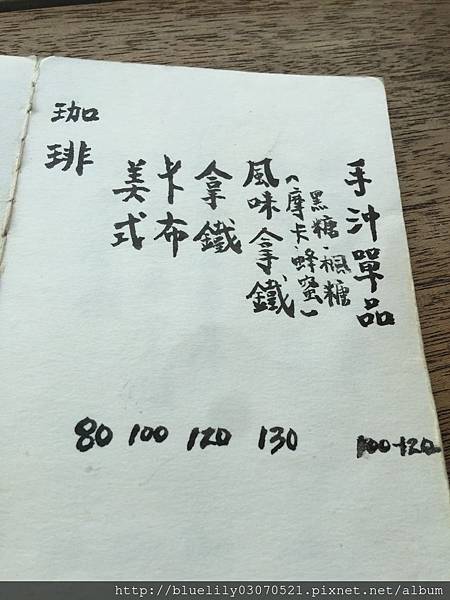 珈琲
美式
卡布
拿鐵
風味拿鐵
(摩卡·蜂蜜)
黑糖·楓糖
手沖單品
80 100 120 130 100-120
http://bluelily03070521.pixnet.net/album